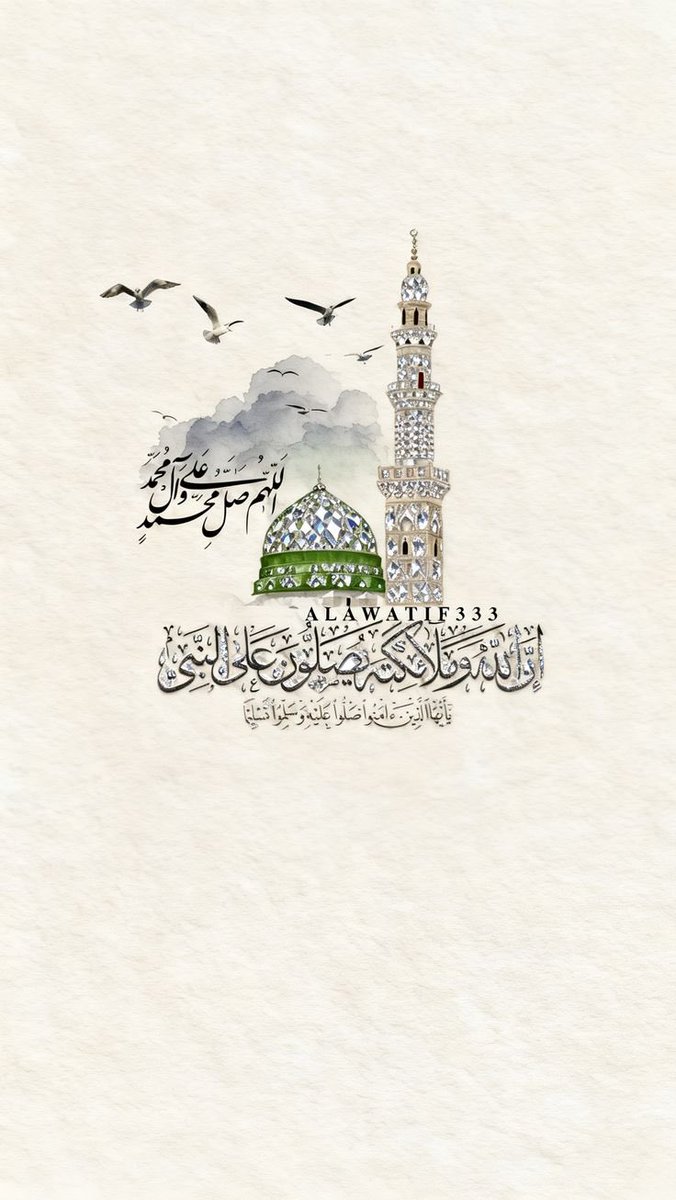 اللّهُمَّ صَلِّ عَلى مُحَمَّدٍ وَآلِ مُحَمَّدٍ
ALAWATIF333
إِنَّ اللّٰهَ وَمَلَائِكَتَهُ يُصَلُّونَ عَلَى النَّبِيِّ
يَٰٓأَيُّهَا ٱلَّذِينَ ءَامَنُوا۟ صَلُّوا۟ عَلَيْهِ وَسَلِّمُوا۟ تَسْلِيمًا